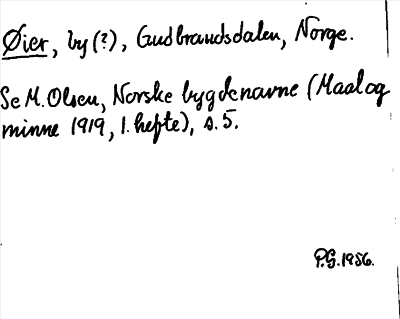 Øier, by (?), Gudbrandsdalen, Norge.
Se M. Olsen, Norske bygdenavne (Maal og
minne 1919, 1. hefte), s. 5.
P.G. 1956.